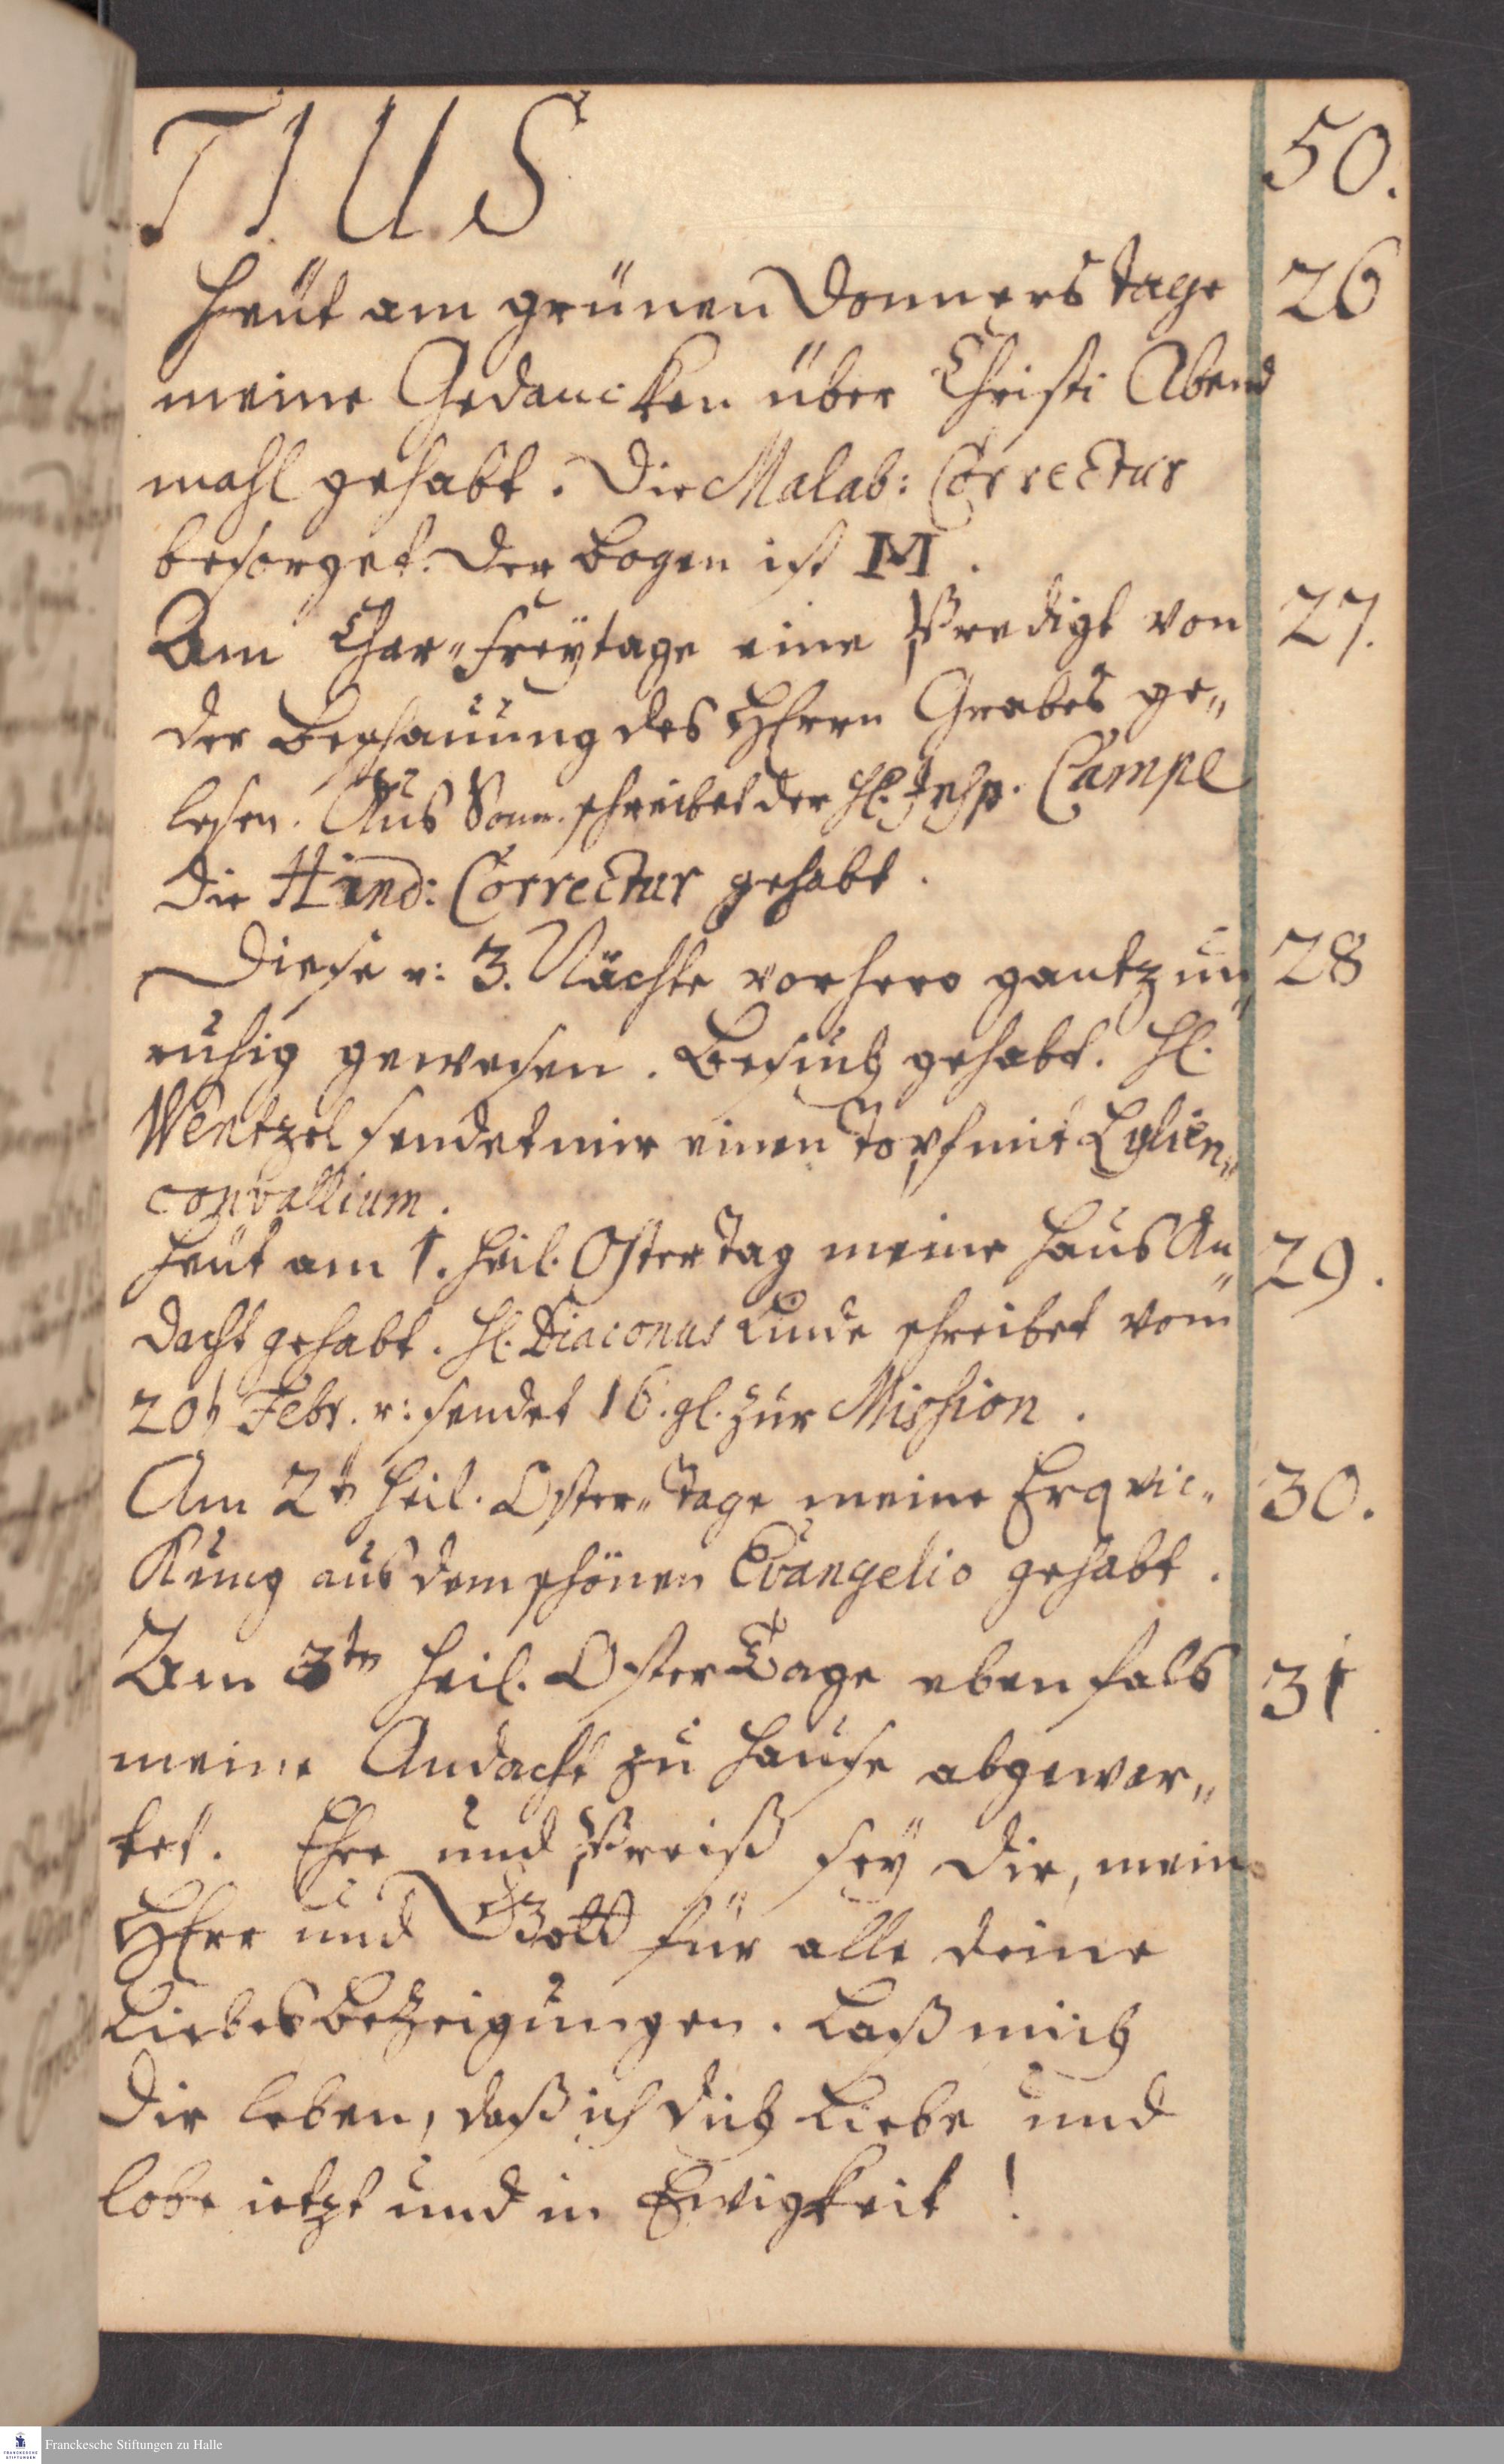 TIUS 50.
Heüt am grünen Donnerstage 26
meine Gedancken über Christi Abend
mahl gehabt. Die Malab: Correctur
besorget. Der Bogen ist M.
Am Char-Freÿtage eine Predigt von 27.
der Beschauung des HErrn Grabes ge„
lesen. Aus Somm. schreibet der H. Insp. Campe
Die Hind: Correctur gehabt.
Diese u: 3. Nächte vorhero gantz un„ 28
ruhig gewesen. Besuch gehabt. H.
Wentzel sendet mir einen Topf mit Lylien„
convallium.
Heut am 1. Heil. Oster Tag meine Haus An„ 29.
dacht gehabt. H. Diaconus Linde schreibet vom
20t Febr. u: sendet 16. gl. zur Mission.
Am 2ten Heil. Oster„Tage meine Erqvic„ 30.
kung aus dem schönen Evangelio gehabt.
Am 3ten Heil. Oster Tage ebenfals 31
meine Andacht zu Hause abgewar„
tet. Ehre und Preiß seÿ dir, mein
HErr und Gott für alle deine
Liebes Bezeigungen. Laß mich
Dir leben, daß ich dich Liebe und
lobe ietzt und in Ewigkeit!
Franckesche Stiftungen zu Halle